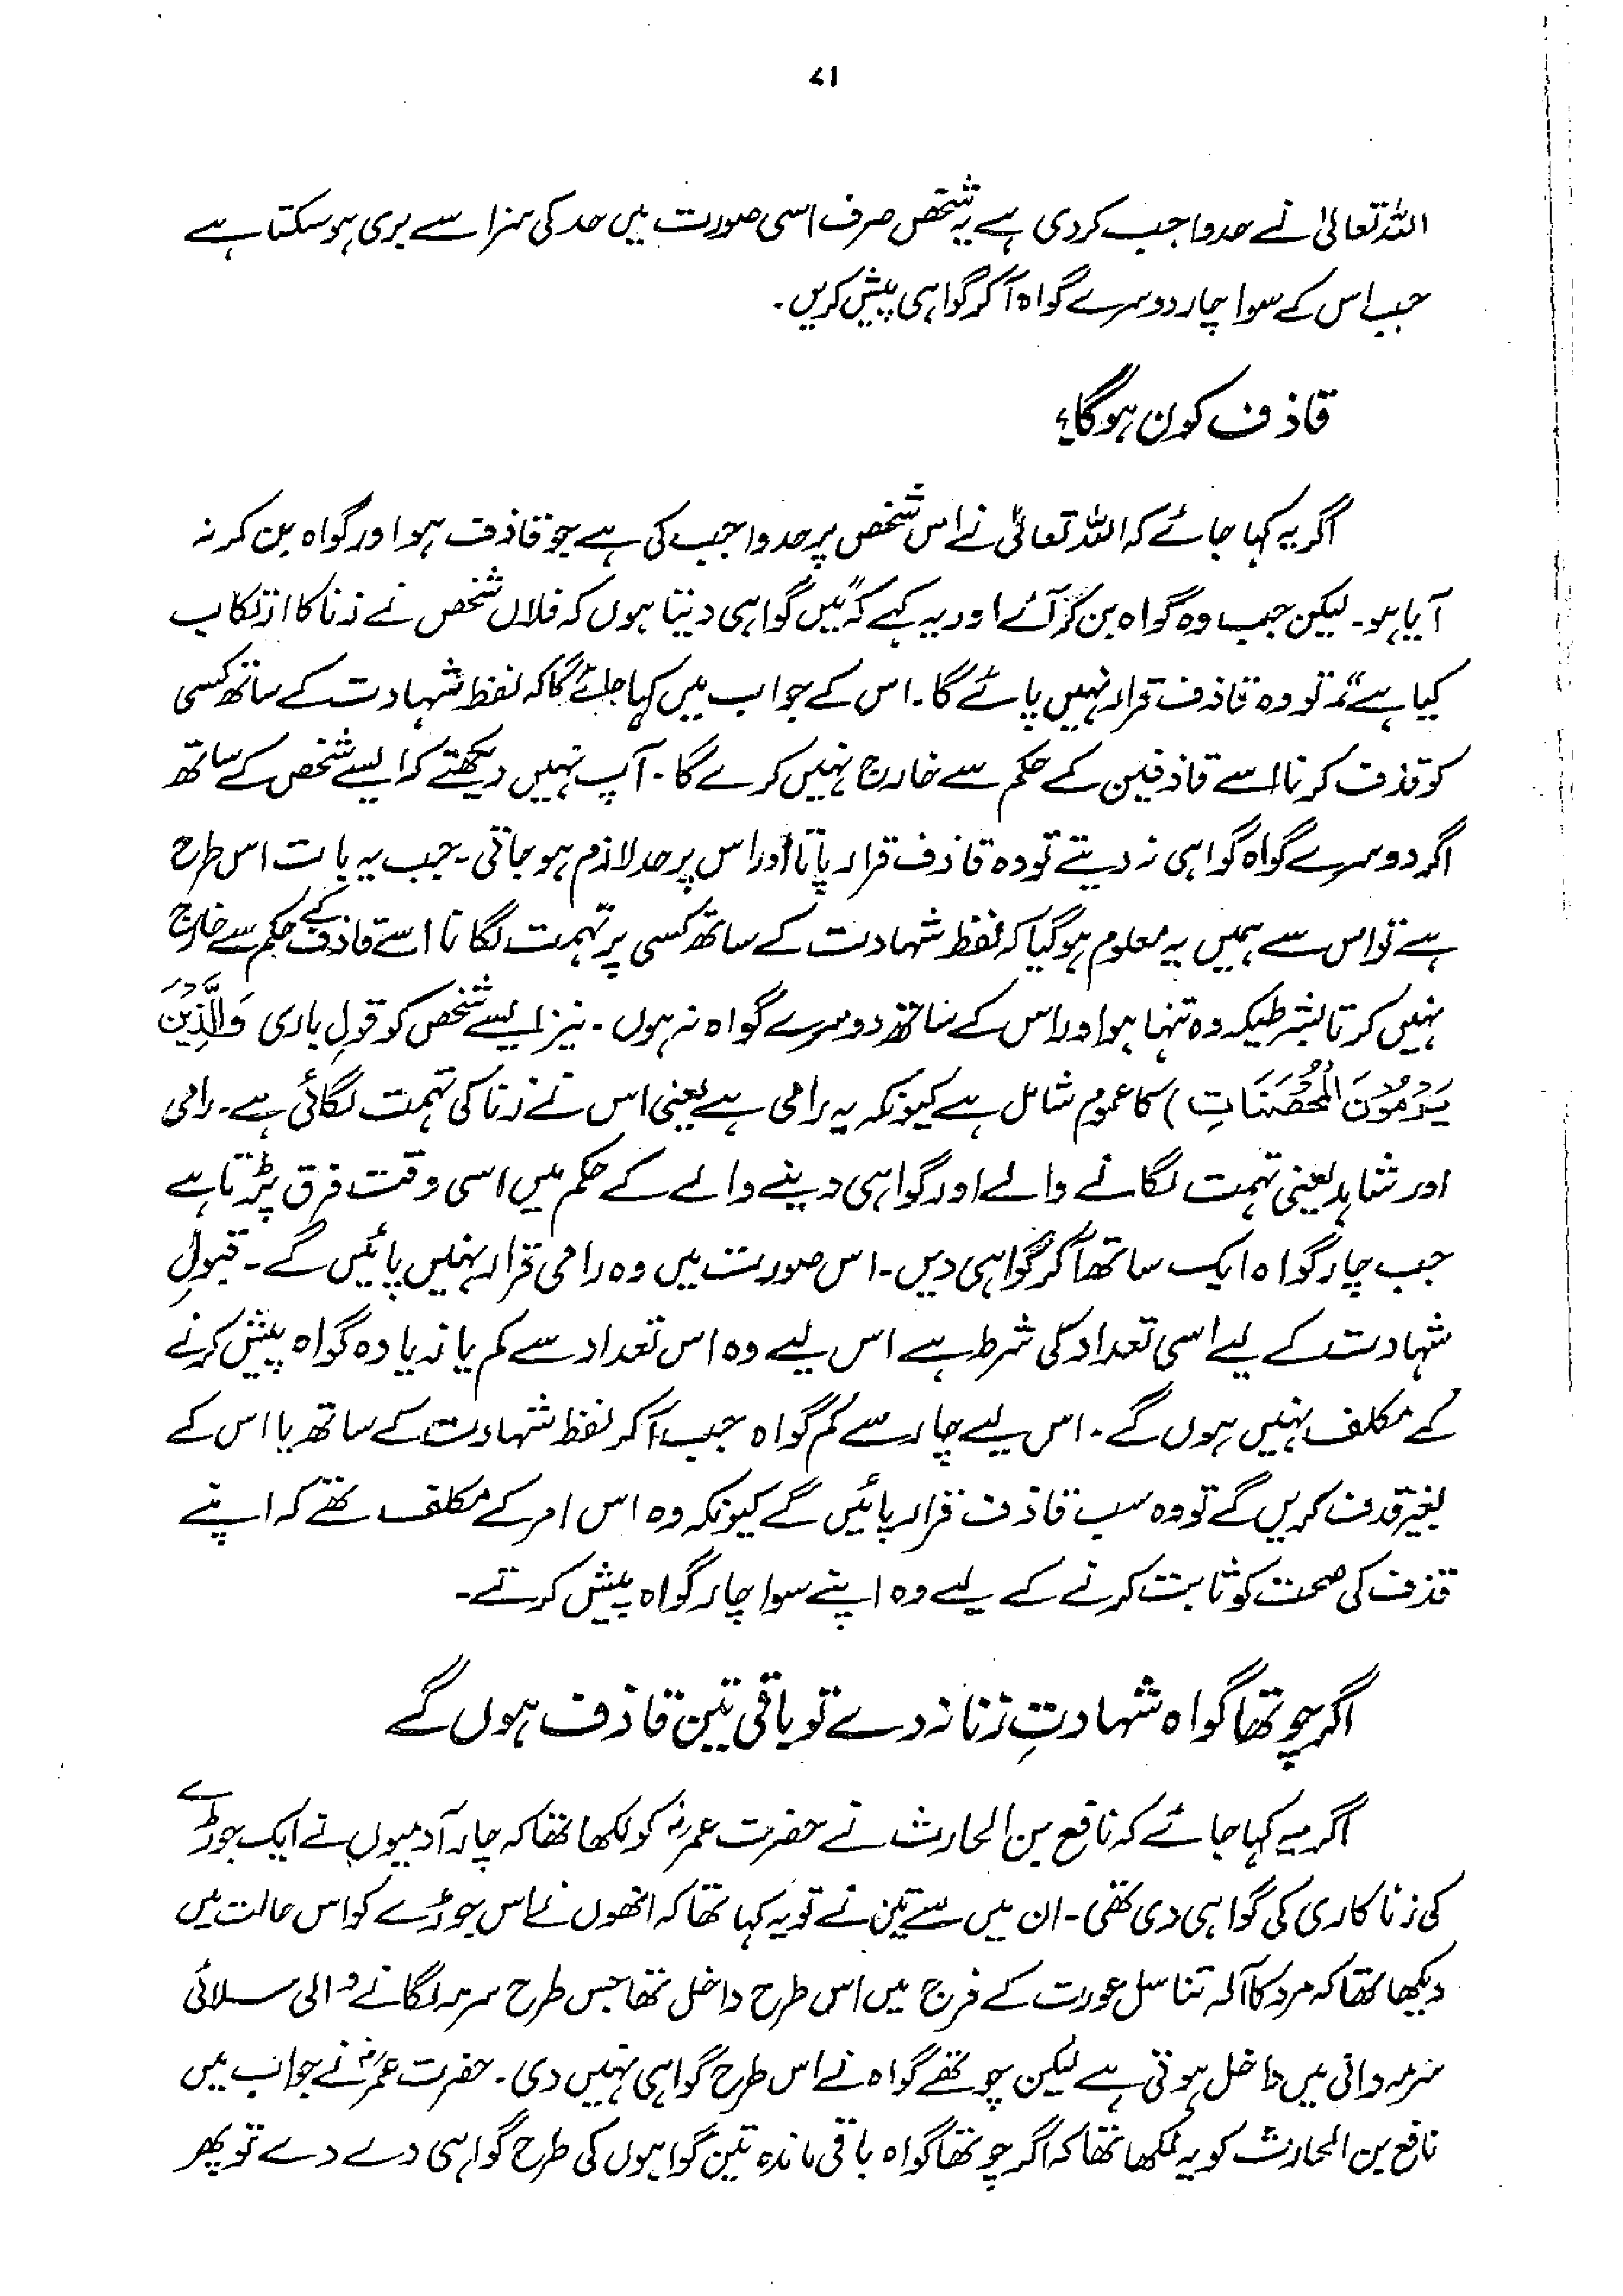 ۷۱
اللہ تعالیٰ نے حد واجب کردی ہے یہ شخص صرف اسی صورت میں حد کی سزا سے بری ہو سکتا ہے
جب اس کے سوا چار دوسرے گواہ آکر گواہی پیش کریں۔
قاذف کون ہوگا؟
اگر یہ کہا جائے کہ اللہ تعالیٰ نے اس شخص پر حد واجب کی ہے جو قاذف ہو اور گواہ بن کر نہ
آیا ہو۔ لیکن جب وہ گواہ بن کر آئے اور یہ کہے کہ "میں گواہی دیتا ہوں کہ فلاں شخص نے زنا کا ارتکاب
کیا ہے" تو وہ قاذف قرار نہیں پائے گا۔ اس کے جواب میں کہا جائے گا کہ لفظ شہادت کے ساتھ کسی
کو قذف کرنا اسے قاذفین کے حکم سے خارج نہیں کرے گا۔ آپ نہیں دیکھتے کہ ایسے شخص کے ساتھ
اگر دوسرے گواہ گواہی نہ دیتے تو وہ قاذف قرار پاتا اور اس پر حد لازم ہو جاتی۔ جب یہ بات اس طرح
ہے تو اس سے ہمیں یہ معلوم ہوگیا کہ لفظ شہادت کے ساتھ کسی پر تہمت لگانا اسے قاذف کے حکم سے خارج
نہیں کرتا بشرطیکہ وہ تنہا ہو اور اس کے ساتھ دوسرے گواہ نہ ہوں۔ نیز ایسے شخص کو قولِ باری وَالَّذِیْنَ
یَرْمُوْنَ الْمُحْصَنَاتِ) کا عموم شامل ہے کیونکہ یہ رامی ہے یعنی اس نے زنا کی تہمت لگائی ہے۔ رامی
اور شاہد یعنی تہمت لگانے والے اور گواہی دینے والے کے حکم میں اسی وقت فرق پڑتا ہے
جب چار گواہ ایک ساتھ آکر گواہی دیں۔ اس صورت میں وہ رامی قرار نہیں پائیں گے۔ قبولِ
شہادت کے لیے اسی تعداد کی شرط ہے اس لیے وہ اس تعداد سے کم یا زیادہ گواہ پیش کرنے
کے مکلف نہیں ہوں گے۔ اس لیے چار سے کم گواہ جب آکر لفظ شہادت کے ساتھ یا اس کے
بغیر قذف کریں گے تو وہ سب قاذف قرار پائیں گے کیونکہ وہ اس امر کے مکلف تھے کہ اپنے
قذف کی صحت کو ثابت کرنے کے لیے وہ اپنے سوا چار گواہ پیش کرتے۔
اگر چوتھا گواہ شہادتِ زنا نہ دے تو باقی تین قاذف ہوں گے
اگر یہ کہا جائے کہ نافع بن الحارث نے حضرت عمرؓ کو لکھا تھا کہ چار آدمیوں نے ایک جوڑے
کی زنا کاری کی گواہی دی تھی۔ ان میں سے تین نے تو یہ کہا تھا کہ انھوں نے اس جوڑے کو اس حالت میں
دیکھا تھا کہ مرد کا آلہ تناسل عورت کے فرج میں اس طرح داخل تھا جس طرح سرمہ لگانے والی سلائی
سرمہ دانی میں داخل ہوتی ہے لیکن چوتھے گواہ نے اس طرح گواہی نہیں دی۔ حضرت عمرؓ نے جواب میں
نافع بن الحارث کو یہ لکھا تھا کہ اگر چوتھا گواہ باقی ماندہ تین گواہوں کی طرح گواہی دے دے تو پھر